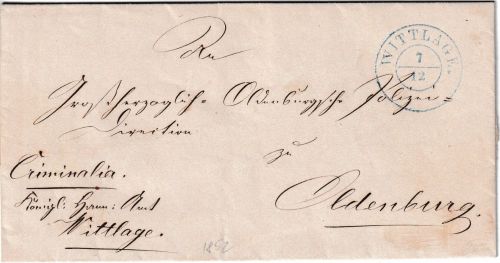 An
WITTLAGE.
7
12
Großherzoglich-Oldenburgsche Polizei-
Direction
zu
Oldenburg.
Criminalia.
Königl: Hann: Amt
Wittlage.
1852